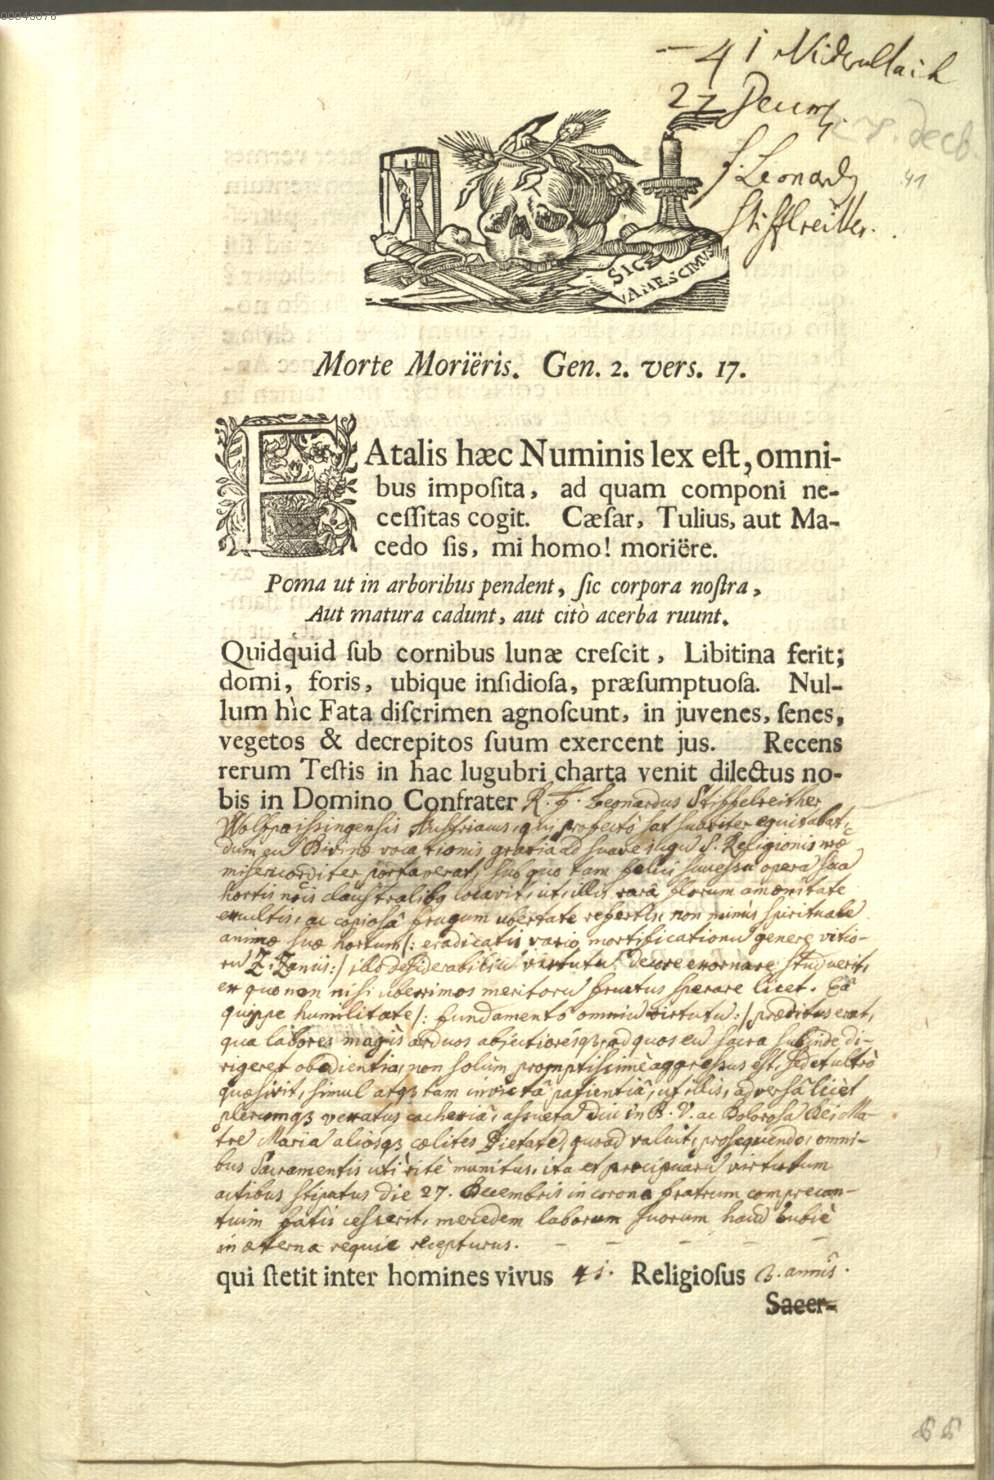 00048076
– 41 Nider
27 Decem
27. decb.
41
f. Leonardg
Stifflreitter.
SIC
VANESCIMUS
Morte Moriëris. Gen. 2. vers. 17.
FAtalis hæc Numinis lex eſt, omni-
bus impoſita, ad quam componi ne-
ceſſitas cogit. Cæſar, Tulius, aut Ma-
cedo ſis, mi homo! moriëre.
Poma ut in arboribus pendent, ſic corpora noſtra,
Aut matura cadunt, aut citò acerba ruunt.
Quidquid ſub cornibus lunæ creſcit, Libitina ferit;
domi, foris, ubique inſidioſa, præſumptuoſa. Nul-
lum hìc Fata diſcrimen agnoſcunt, in juvenes, ſenes,
vegetos & decrepitos ſuum exercent jus. Recens
rerum Teſtis in hac lugubri charta venit dilectus no-
bis in Domino Confrater R. F. Leonardus Stiffelreither
Austriacus, qui profectò sat
dum eū Divinæ vocationis gratia ad suave S. Religionis
misericorditer portaverat, sub quo tam felici successu opera sua
hortis locavit, ut, illis rarâ florum amœnitate
excultis, ac copiosâ frugum ubertate refertis, non minùs spirituale
animæ suæ hortum |: eradicatis vario mortificationū genere vitio-
rū Zizaniis :| illo desiderabiliū virtutū decore exornare studuerit,
ex quo non nisi uberrimos meritorū fructus sperare licet. Eâ
quippe humilitate |: fundamento omniū virtutū :| præditus erat,
qua labores magis arduos abjectioresq̨, ad quos eū sacra subinde di-
rigeret obedientia, non solùm promptissimè aggressus est, sed et ultrò
quæsivit, simul atq̨ tam invictâ patientiâ, ut illis, adversâ licet
plerumq̨ vexatus cachexiâ, assuetâ diu in B. V. ac Dolorosâ Dei Ma-
tre Maria aliosq̨ cælites Pietate, quoad valuit, prosequendo, omni-
bus Sacramentis uti ritè munitus, ita et præcipuarū virtutum
actibus stipatus die 27. Decembris in corona fratrum comprecan-
tium fatis cesserit, mercedem laborum suorum haud dubiè
in æterna requie recepturus. – – – – –
qui ſtetit inter homines vivus 41. Religioſus 13. annis.
Sacer-